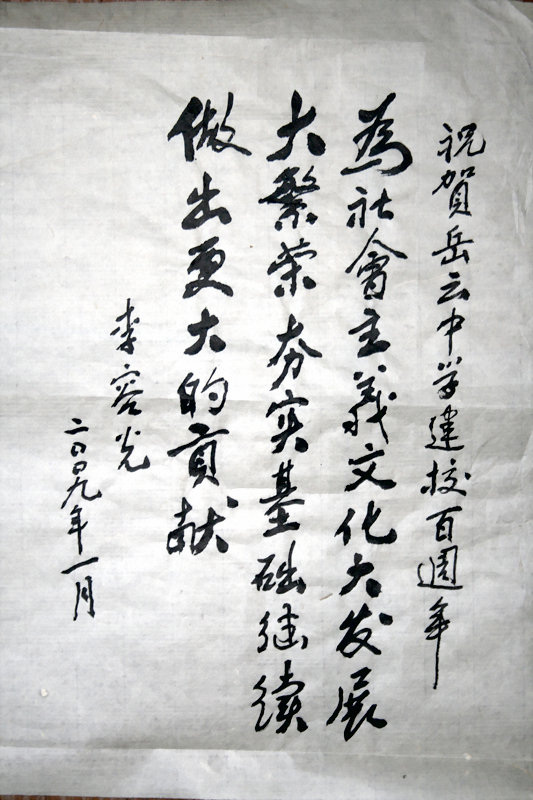 祝賀岳云中学建校百週年
為社會主義文化大发展
大繁荣夯实基础继续
做出更大的貢献
李容光
二〇〇九年一月